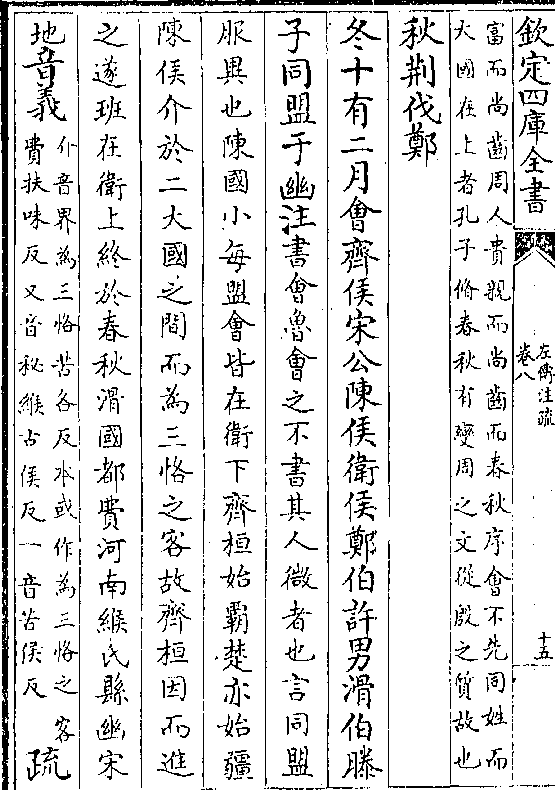 欽定四庫全書
左傳注疏
卷八
十五
富而尚齒周人貴親而尚齒而春秋序會不先同姓而
大國在上者孔子脩春秋有變周之文從殷之質故也
秋荆伐鄭
冬十有二月會齊侯宋公陳侯衛侯鄭伯許男滑伯滕
子同盟于幽注書會魯會之不書其人微者也言同盟
服異也陳國小每盟會皆在衛下齊桓始霸楚亦始彊
陳侯介於二大國之間而為三恪之客故齊桓因而進
之遂班在衛上終於春秋滑國都費河南緱氏縣幽宋
地音義介音界為三恪苦各反本或作為三恪之客
費扶味反又音秘緱古侯反一音苦侯反疏